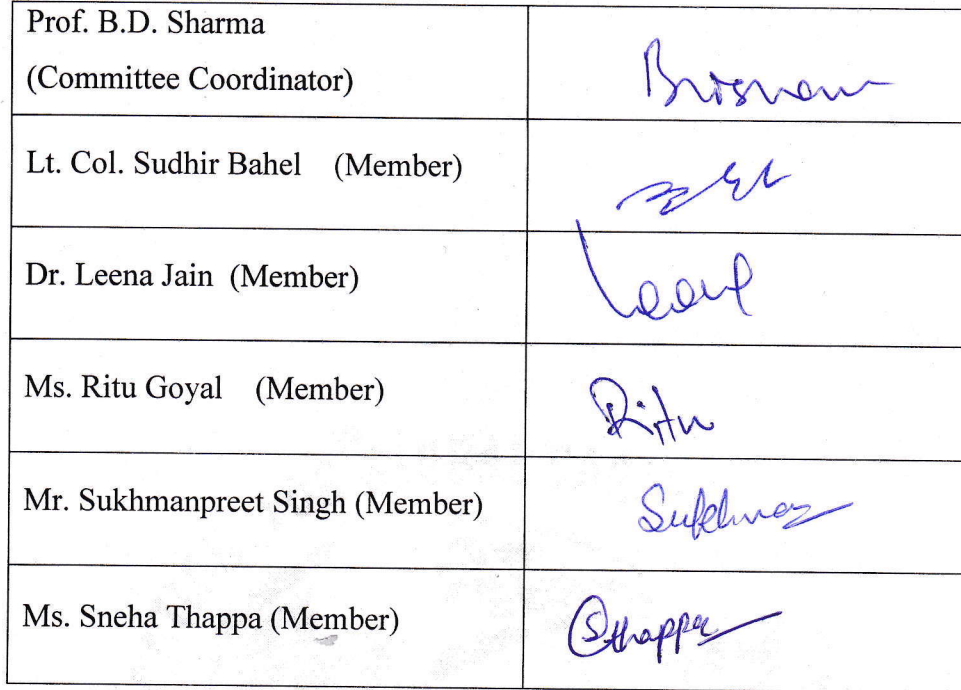 Prof. B.D. Sharma
(Committee Coordinator)
Lt. Col. Sudhir Bahel (Member)
Dr. Leena Jain (Member)
Ms. Ritu Goyal (Member)
Ritu
Mr. Sukhmanpreet Singh (Member)
Ms. Sneha Thappa (Member)
SThappa